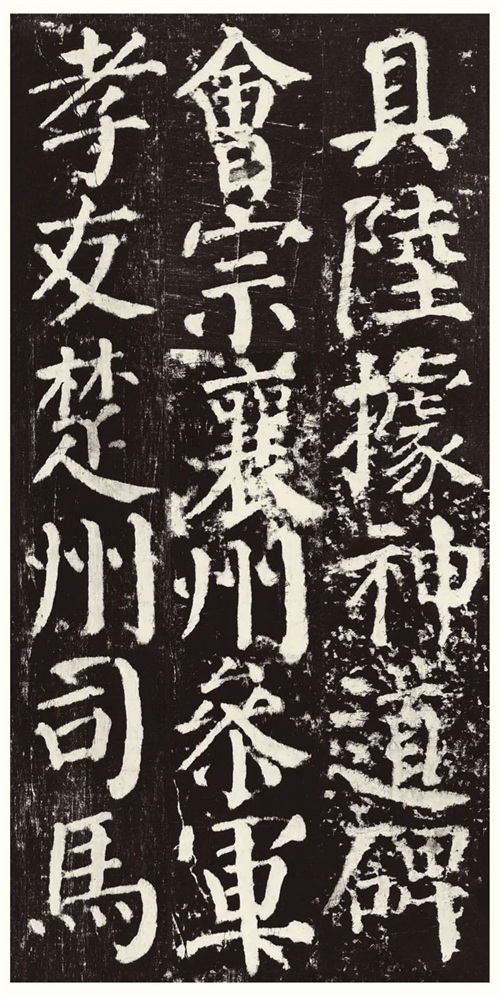 具陸據神道碑
會宗襄州參軍
孝友楚州司馬